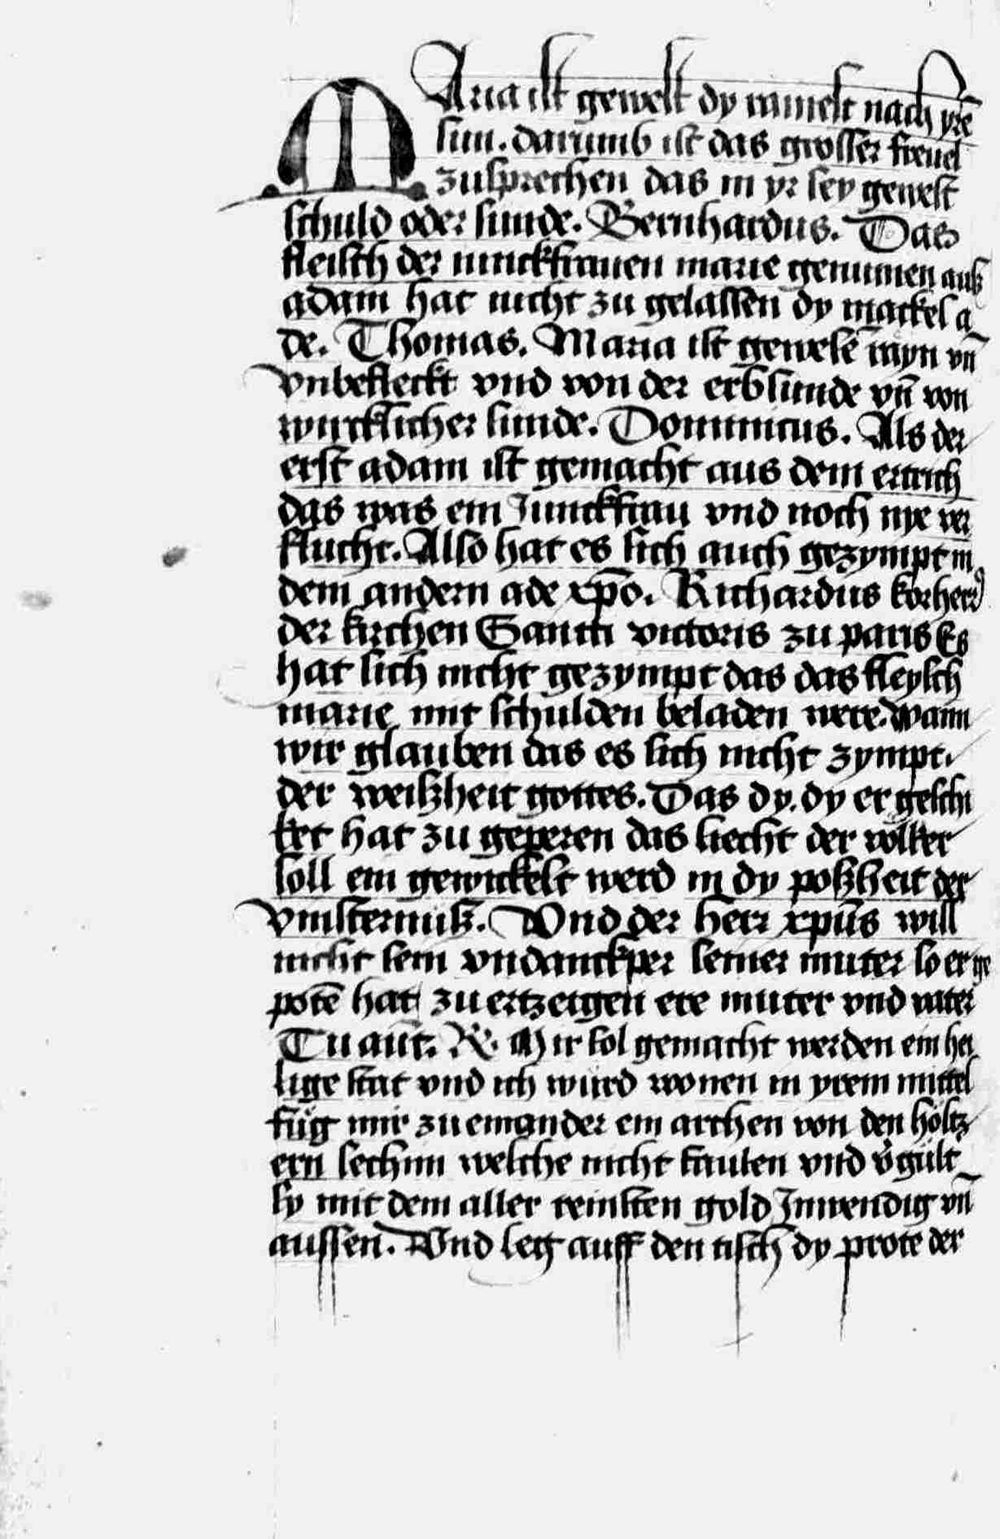 MAria ist gewest dy rainest nach yrē
sun. darumb ist das grosser freuel
zusprechen das in yr sey gewest
schuld oder sunde. Bernhardus. Das
fleisch der iunckfrauen marie genumen auß
adam hat nicht zu gelassen dy mackel a
de. Thomas. Maria ist gewesē rayn vn̄
vnbefleckt vnd von der erbsunde vn̄ von
wurcklicher sunde. Dominicus. Als der
erst adam ist gemacht aus dem ertrich
das was ein Junckfrau vnd noch nye ver
flucht. Also hat es sich auch gezympt in
dem andern ade xp̄o. Richardus korherr
der kirchen Sancti victoris zu paris Es
hat sich nicht gezympt das das fleysch
marie mit schulden beladen were. Wann
wir glauben das es sich nicht zympt.
der weißheit gottes. Das dy. dy er geschi
ket hat zu geperen das liecht der völker
soll ein gewickelt werd in dy poßheit der
vinsternuß. Vnd der herr xpūs will
nicht sein vndanckper seiner muter so er ge
potē hat zu ertzeigen ere muter vnd vater
Tu aūt. R. Mir sol gemacht werden ein hei
lige stat vnd ich würd wonen in yrem mittel
füg mir zu einander ein archen von den höltz
ern sechim welche nicht faulen vnd v̄gült
sy mit dem aller reinsten gold Jnwendig vn̄
aussen. Vnd leg auff den tisch dy prote der